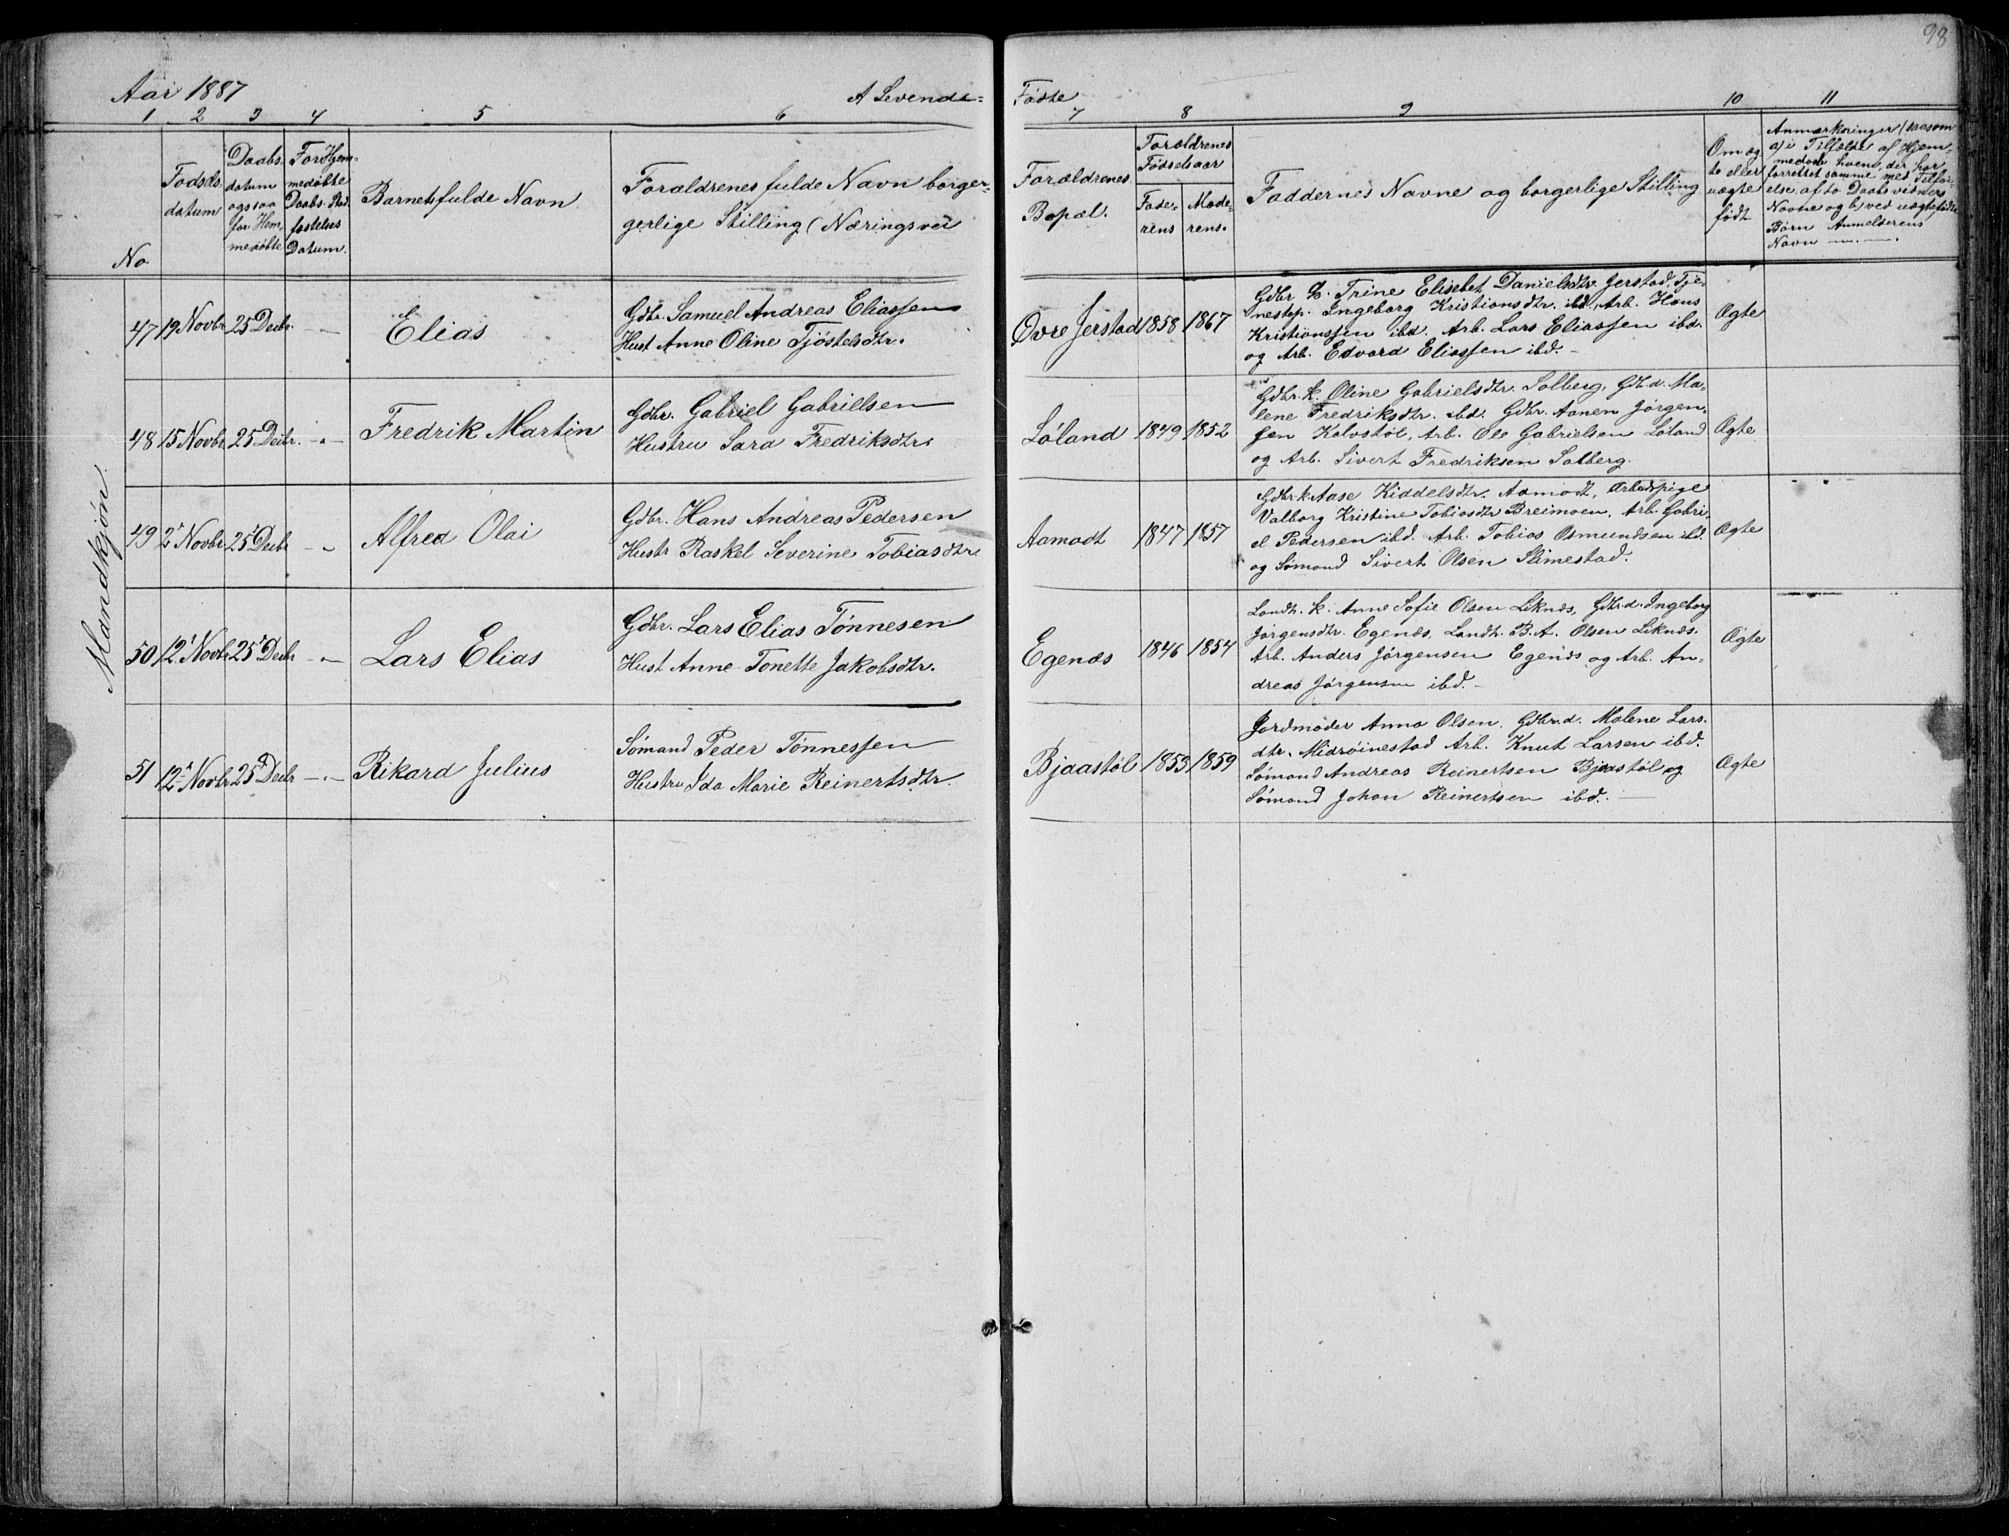 98
Aar 1887
A Levende=
Fødte
1 2 3 4 5 6
7 8 9 10 11
No
Fødsels
datum
Daabs
datum
ogsaa
for Hem
medøbte
For Hjem-
medøbte
Daabs. Stad
fæstelses
Datum.
Barnets fulde Navn
Forældrenes fulde Navn borger-
gerlige Stilling (Næringsvei
Forældrenes
Bopæl.
Forældrenes
Fødselsaar
Fade-
rens
Mode-
rens.
Faddernes Navne og borgerlige Stilling
Om æg
te eller
uægte
født
Anmærkninger (saasom
a) i Tilfælde af Hjem-
medaab hvem der har
forrettet samme med Tilføi-
else af to Daabsvidners
Navne og b) ved uægtefødte
Børn Anmelderens
Navn
Mandkjøn.
47 19 Novbr 25 Decbr. -"- Elias
Gdbr. Samuel Andreas Eliassen
Hust Anne Oline Tjöstelsdtr.
Øvre Jerstad 1858 1867
Gdbr k. Trine Elisebet Danielsdtr. Jerstad, Tje-
nestep. Ingeborg Kristionsdtr. ibd, Arb. Hans
Kristionssen ibd. Arb. Lars Eliassen ibd.
og Arb. Edvard Eliassen ibd.
Ægte
48 15 Novbr 25 Decbr. -"- Fredrik Martin
Gdbr. Gabriel Gabrielsen
Hustru Sara Fredriksdtr.
Løland 1849 1852
Gdbr. k. Oline Gabrielsdtr. Solberg, Gdb. d. Ma-
lene Fredriksdtr. ibd. Gdbr. Aanen Jørgen-
sen Kalvstøl, Arb. Ole Gabrielsen Løland
og Arb. Sivert Fredriksen Solberg.
Ægte
49 2 Novbr 25 Decbr -"- Alfred Olai
Gdbr. Hans Andreas Pedersen
Hustr Raskel Severine Tobiasdtr.
Aamodt 1847 1857
Gdbr k. Aase Kiddelsdtr. Aamodt, Arbeidspige
Valborg Kristine Tobiasdtr Breimoen, Arb. Gabri-
el Pedersen ibd. Arb. Tobias Osmundsen ibd.
og Sømand Sivert Olsen Stimestad.
Ægte
50 12 Novbr 25 Decbr -"- Lars Elias
Gdbr. Lars Elias Tönnesen
Hust Anne Tonette Jakobsdtr.
Egenæs 1846 1854
Landh. k. Anne Sofie Olsen Liknæs, Gdbr. d. Ingeborg
Jørgensdtr. Egenæs, Landh. B. A. Olsen Liknæs.
Arb. Anders Jørgensen Egenæs og Arb. An-
dreas Jørgensen ibd.
Ægte
51 12 Novbr 25 Decbr -"- Rikard Julius
Sømand Peder Tønnessen
Hustru Ida Marie Reinertsdtr.
Bjaastøl 1853 1859
Jordmoder Anna Olsen, Gdbr. d. Malene Lars-
dtr. Midrøinestad Arb. Knut Larsen ibd.
Sømand Andreas Reinertsen Bjaastøl og
Sømand Johan Reinertsen ibd.
Ægte